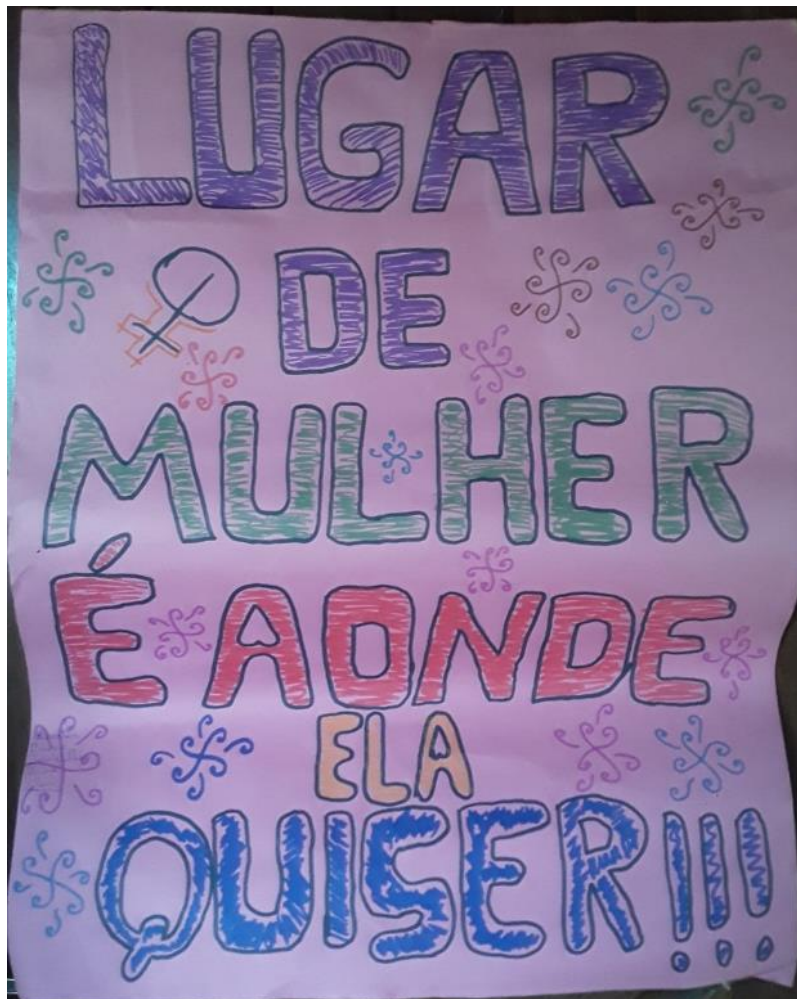 LUGAR
DE
MULHER
É AONDE
ELA
QUISER!!!